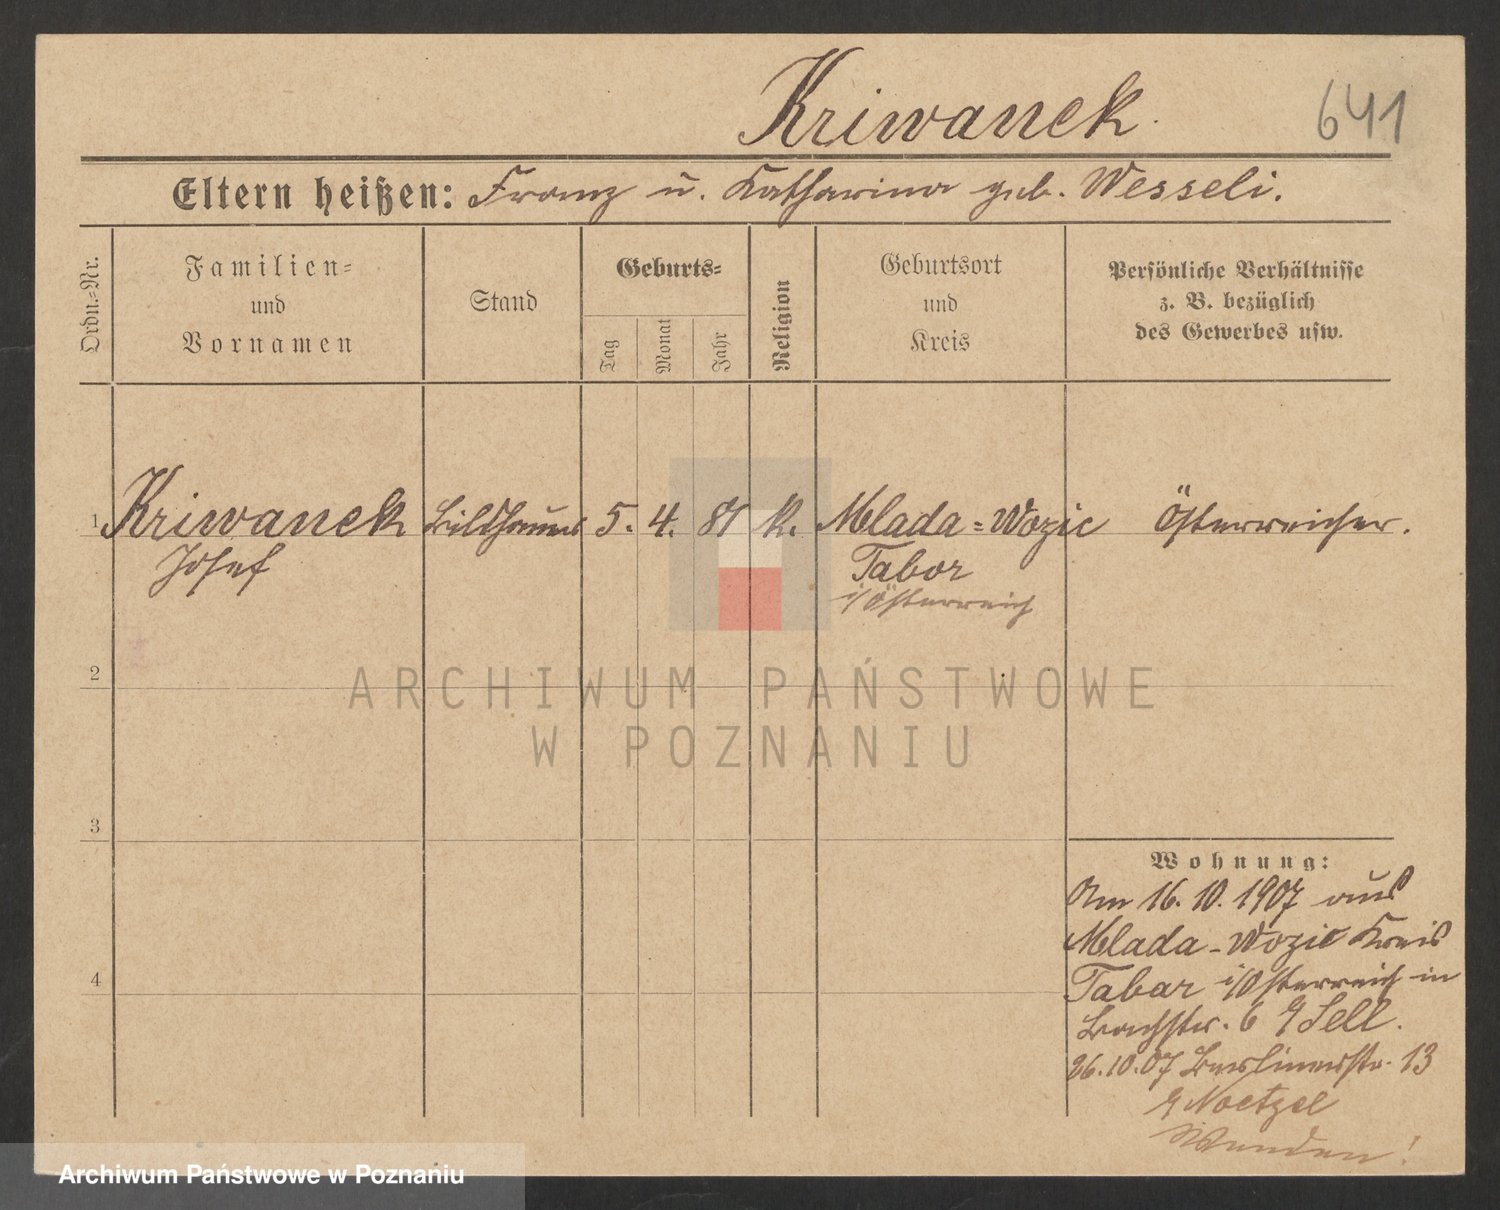 Kriwanek.
641
Eltern heißen: Franz u. Katharina geb. Wesseli.
Ordn.=Nr.
Familien=
und
Vornamen
Stand
Geburts=
Tag
Monat
Jahr
Religion
Geburtsort
und
Kreis
Persönliche Verhältnisse
z. B. bezüglich
des Gewerbes usw.
1 Kriwanek Bildhauer 5. 4. 81 k. Mlada=Wozic Österreicher.
Josef Tabor
i/Österreich
2
ARCHIWUM PAŃSTWOWE
W POZNANIU
3
Wohnung:
Am 16. 10. 1907 aus
Mlada-Wozic Kreis
4
Tabar i/Österreich in
Bachstr. 6 Sell.
26.10.07 Berlinerstr. 13
Noetzel
Archiwum Państwowe w Poznaniu